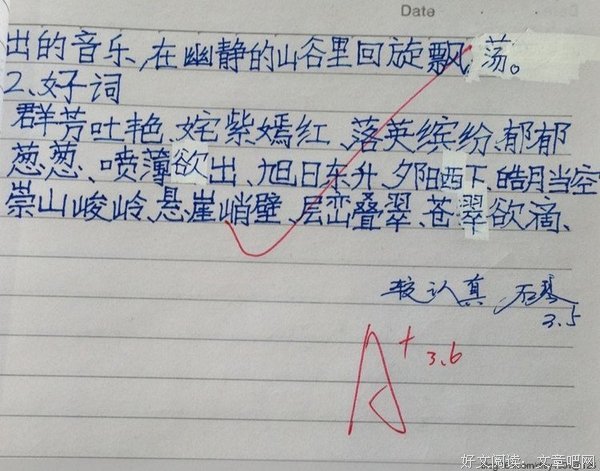 Date
出的音乐,在幽静的山谷里回旋飘荡。
2、好词
群芳吐艳、姹紫嫣红、落英缤纷、郁郁
葱葱、喷薄欲出、旭日东升、夕阳西下、皓月当空
崇山峻岭、悬崖峭壁、层峦叠翠、苍翠欲滴、
较认真
3.5
A+ 3.6
好文阅读:文章吧网